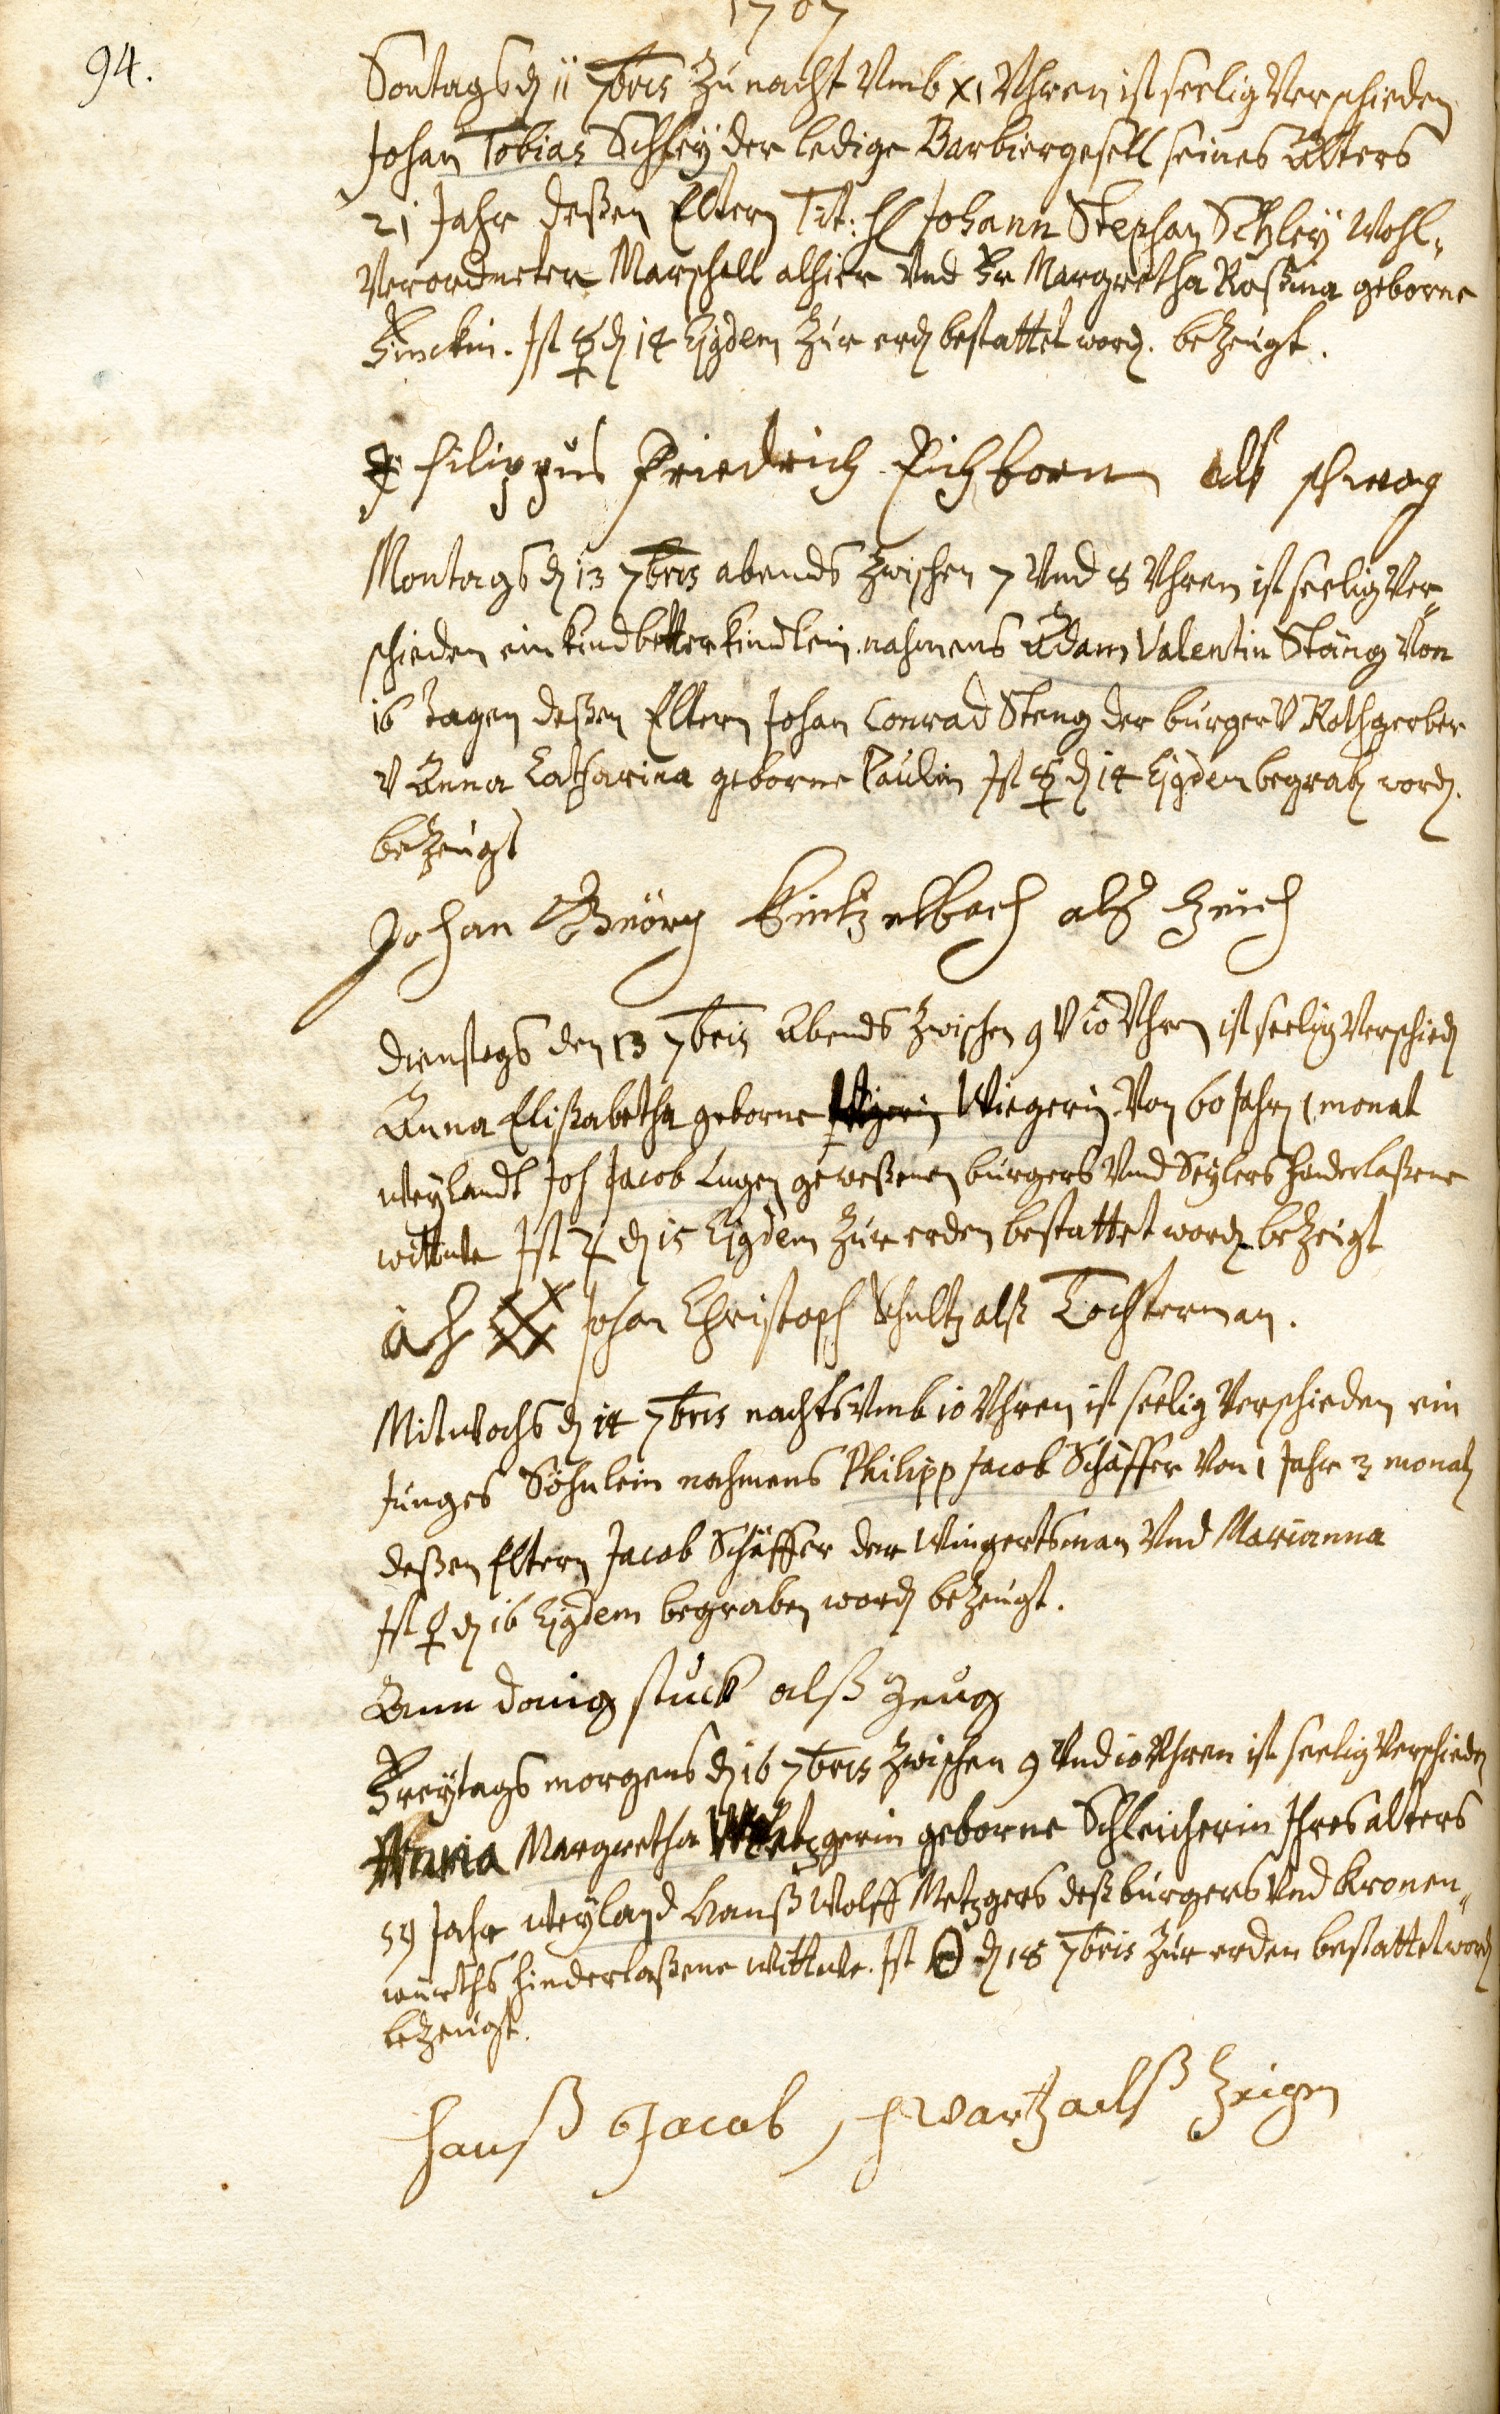 1707
94.
Sontags d 11 7bris Zu nacht Vmb XI Uhren ist seelig Verschieden
Johan Tobias Schley der ledige Barbiergesell seines Alters
21 Jahr deßen Eltern Tit: H Johann Stephan Schley Wohl-
Verordneter Marschall alhier Vnd Fr Margretha Roßina geborne
Finckin. Ist ☿ d 14 Ejgdem Zur erd bestattet word. beZeugt.
Filippus Friedrich Eichborn alß schwag
Montags d 13 7bris abends Zwischen 7 Vnd 8 Uhren ist seelig Ver-
schieden ein kindbetterkindlein nahmens Adam Valentin Stäng Von
16 tagen deßen Eltern Johan Conrad Steng der burger V Rothgerber
V Anna Catharina geborne Paulin Ist ☿ d 14 Ejgdem begrab word.
beZeugt
Johan Geörg Kintzelbach alß Zeuch
Dienstags den 13 7bris Abends Zwischen 9 V 10 Uhren ist seelig Verschied
Anna Elisabetha geborne Wiegerin Von 60 Jahrn 1 monat
weylandt Joh Jacob Lugen geweßenen burgers Vnd Seylers hinderlaßene
wittwe Ist ♃ d 15 Ejgdem Zur erden bestattet word beZeigt
ich Johan Christoph Schultz alß Tochterman.
Mitwochs d 14 7bris nachts Vmb 10 Uhren ist seelig Verschieden ein
Junges Söhnlein nahmens Philipp Jacob Schäffer Von 1 Jahr 3 monat
deßen Eltern Jacob Schäffer der Wingertsman Vnd Marianna
Ist ♀ d 16 Ejgdem begraben word beZeugt.
stuck alß zeug
Freytags morgens d 16 7bris Zwischen 9 Vnd 10 Uhren ist seelig Verschieden
Maria Margretha Metzgerin geborne Schleicherin Ihres alters
59 Jahr weyland Hanß Wolff Metzgers deß burgers Vnd Kronen-
würths hinderlaßene Wittwe. Ist ☉ d 18 7bris Zur erden bestattet word
beZeugt.
Hanß Jacob schwartz alß Zeigen